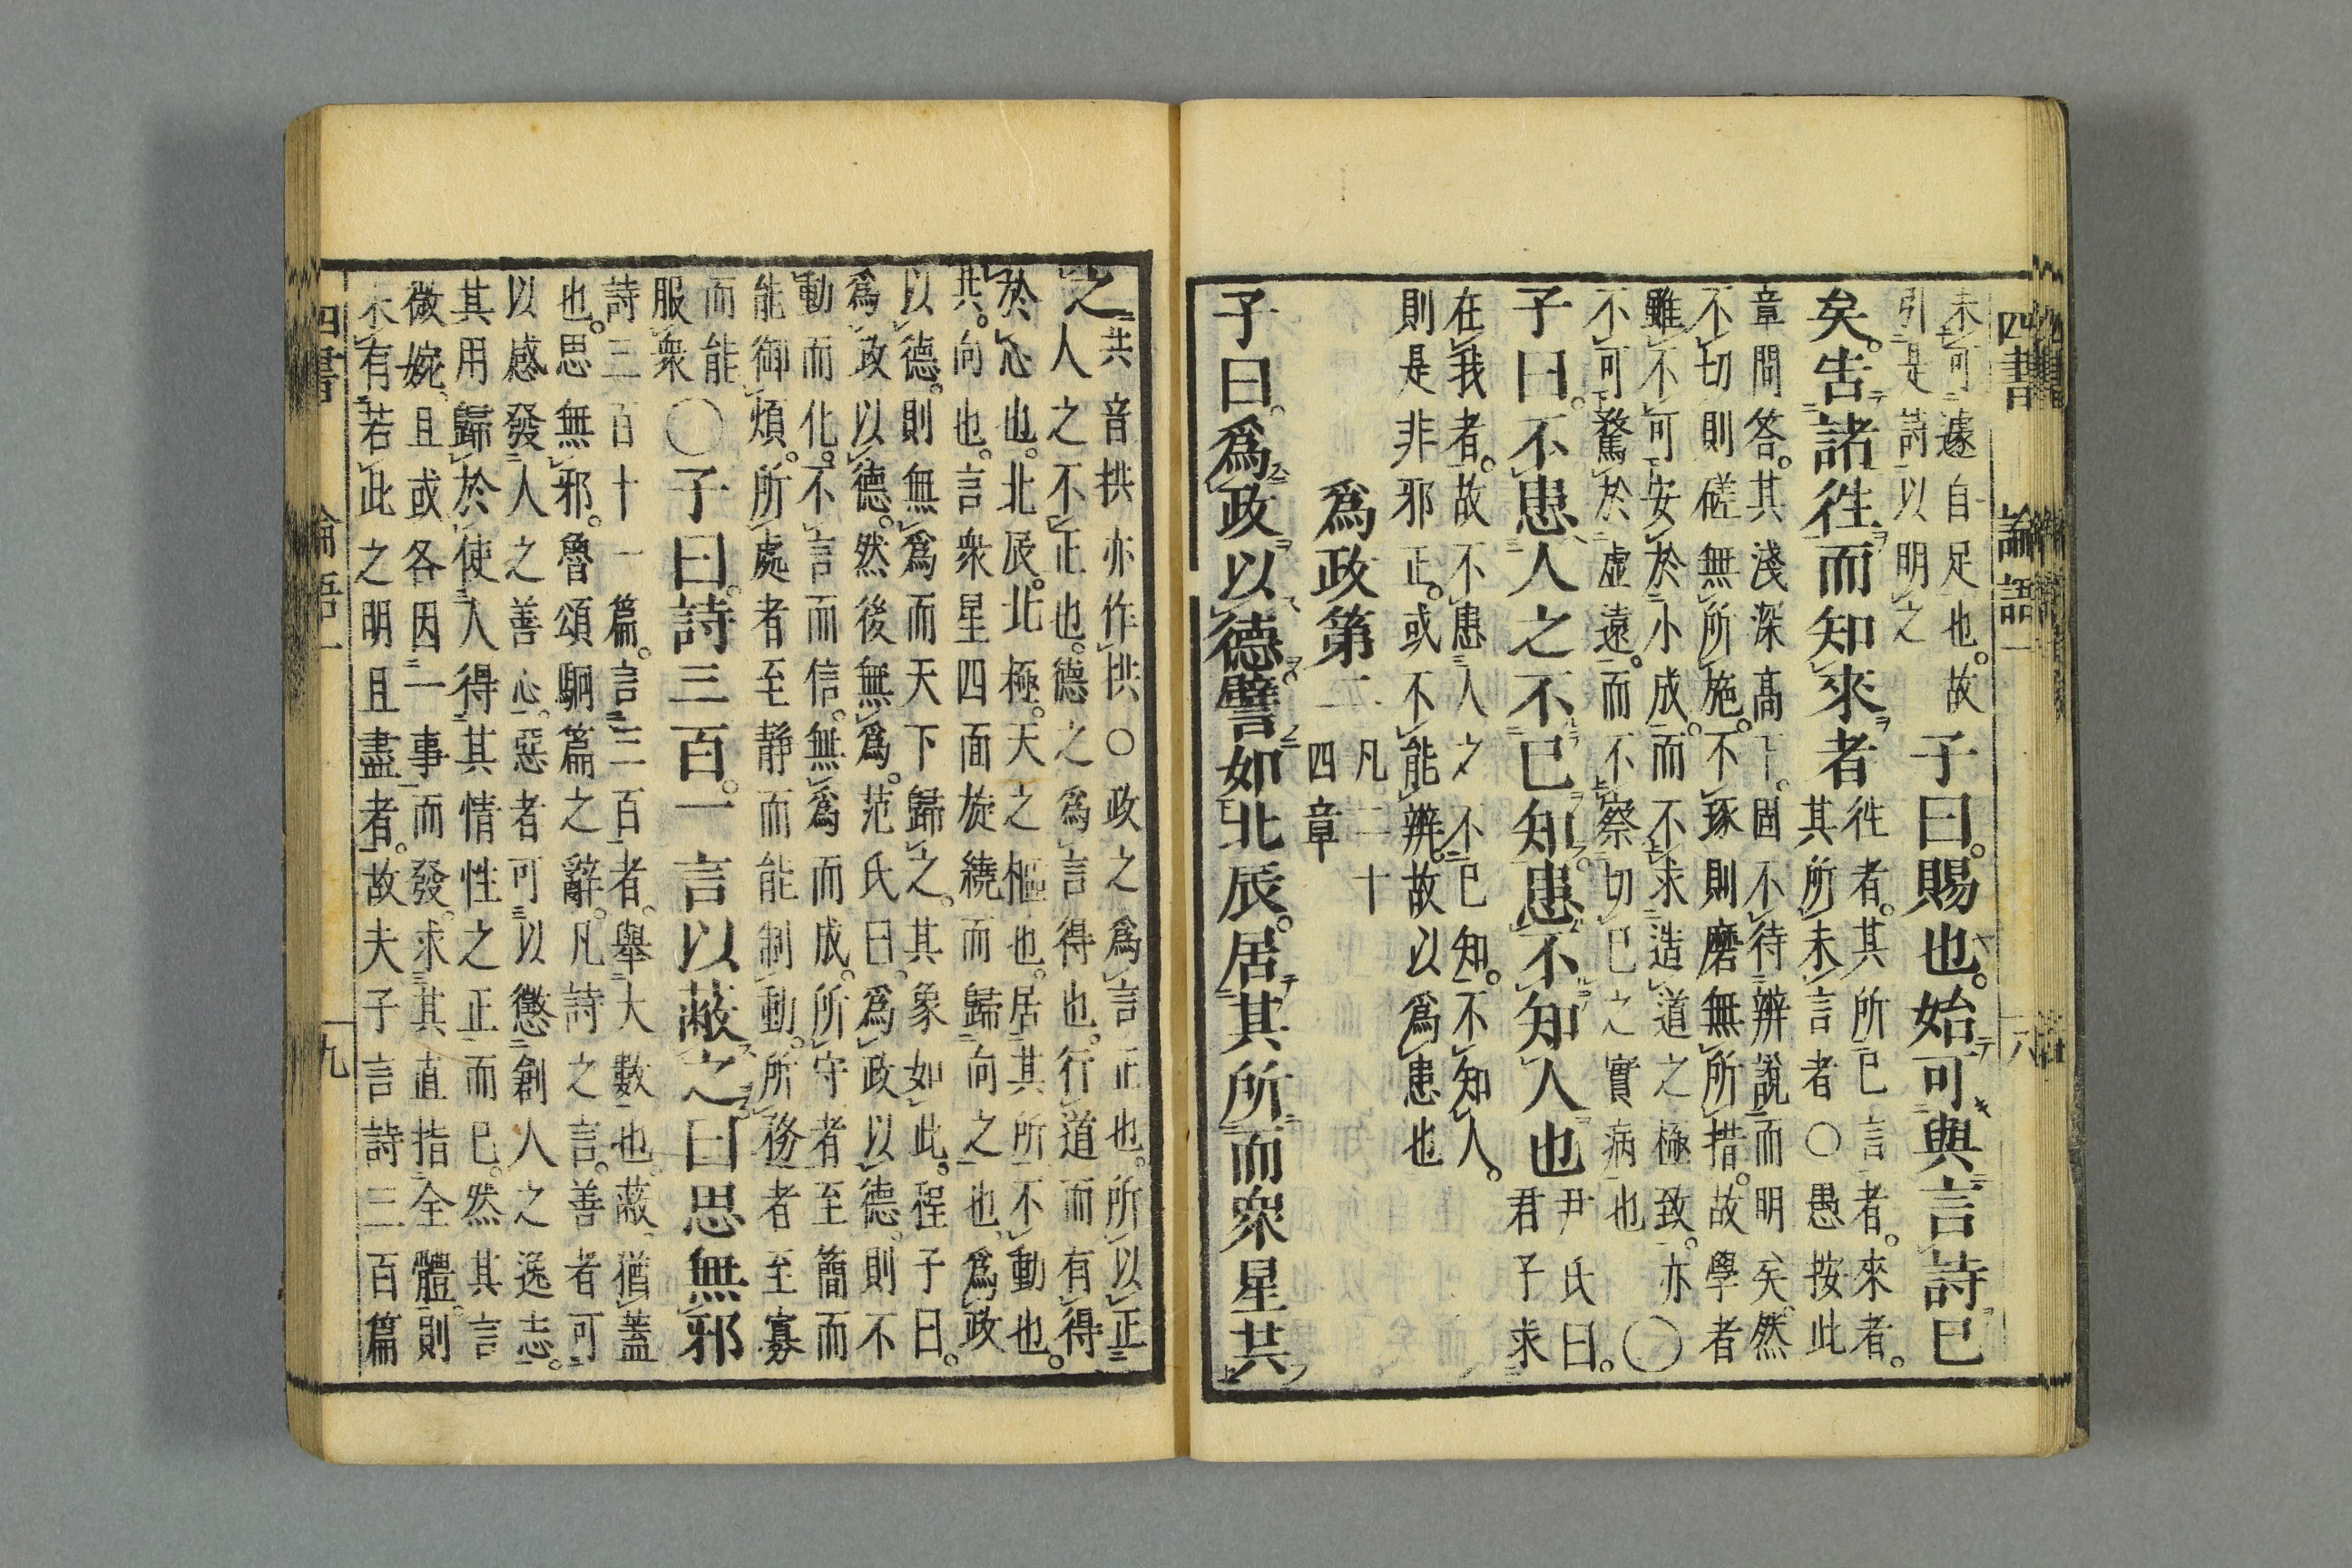 四書　論語一　六
未可遽自足也。故
引是詩以明之
子曰。賜也。始可與言詩已
矣。告諸往而知來者
往者。其所已言者。來者。
其所未言者○愚按此
章問答。其淺深高下。固不待辨說而明矣。然
不切則磋無所施。不琢則磨無所措。故學者
雖不可安於小成。而不求造道之極致。亦
不可騖於虛遠。而不察切己之實病也
○
子曰。不患人之不己知。患不知人也
尹氏曰。
君子求
在我者。故不患人之不己知。不知人。
則是非邪正。或不能辨。故以爲患也
爲政第二
凡二十
四章
子曰。爲政以德。譬如北辰。居其所。而衆星共
之
共音拱亦作拱○政之爲言正也。所以正
人之不正也。德之爲言得也。行道而有得
於心也。北辰。北極。天之樞也。居其所。不動也。
共。向也。言衆星四面旋繞而歸向之也。爲政
以德。則無爲而天下歸之。其象如此。程子曰。
爲政以德。然後無爲。范氏曰。爲政以德。則不
動而化。不言而信。無爲而成。所守者至簡而
能御煩。所處者至靜而能制動。所務者至寡
而能
服衆
○子曰。詩三百。一言以蔽之曰思無邪
詩三百十一篇。言三百者。舉大數也。蔽。猶蓋
也。思無邪。魯頌駉篇之辭。凡詩之言。善者可
以感發人之善心。惡者可以懲創人之逸志。
其用歸於使人得其情性之正而已。然其言
微婉。且或各因一事而發。求其直指全體。則
未有若此之明且盡者。故夫子言詩三百篇
四書　論語一　九